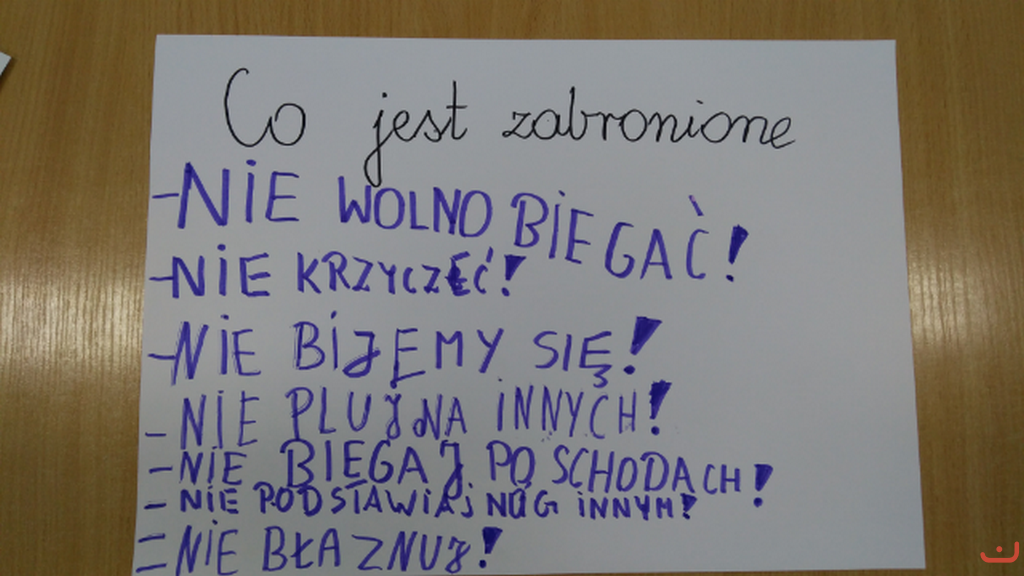 Co jest zabronione
- NIE WOLNO BIEGAĆ!
- NIE KRZYCZEĆ!
- NIE BIJEMY SIĘ!
- NIE PLUJ NA INNYCH!
- NIE BIEGAJ PO SCHODACH!
- NIE PODSTAWIAJ NÓG INNYM!
- NIE BŁAZNUJ!